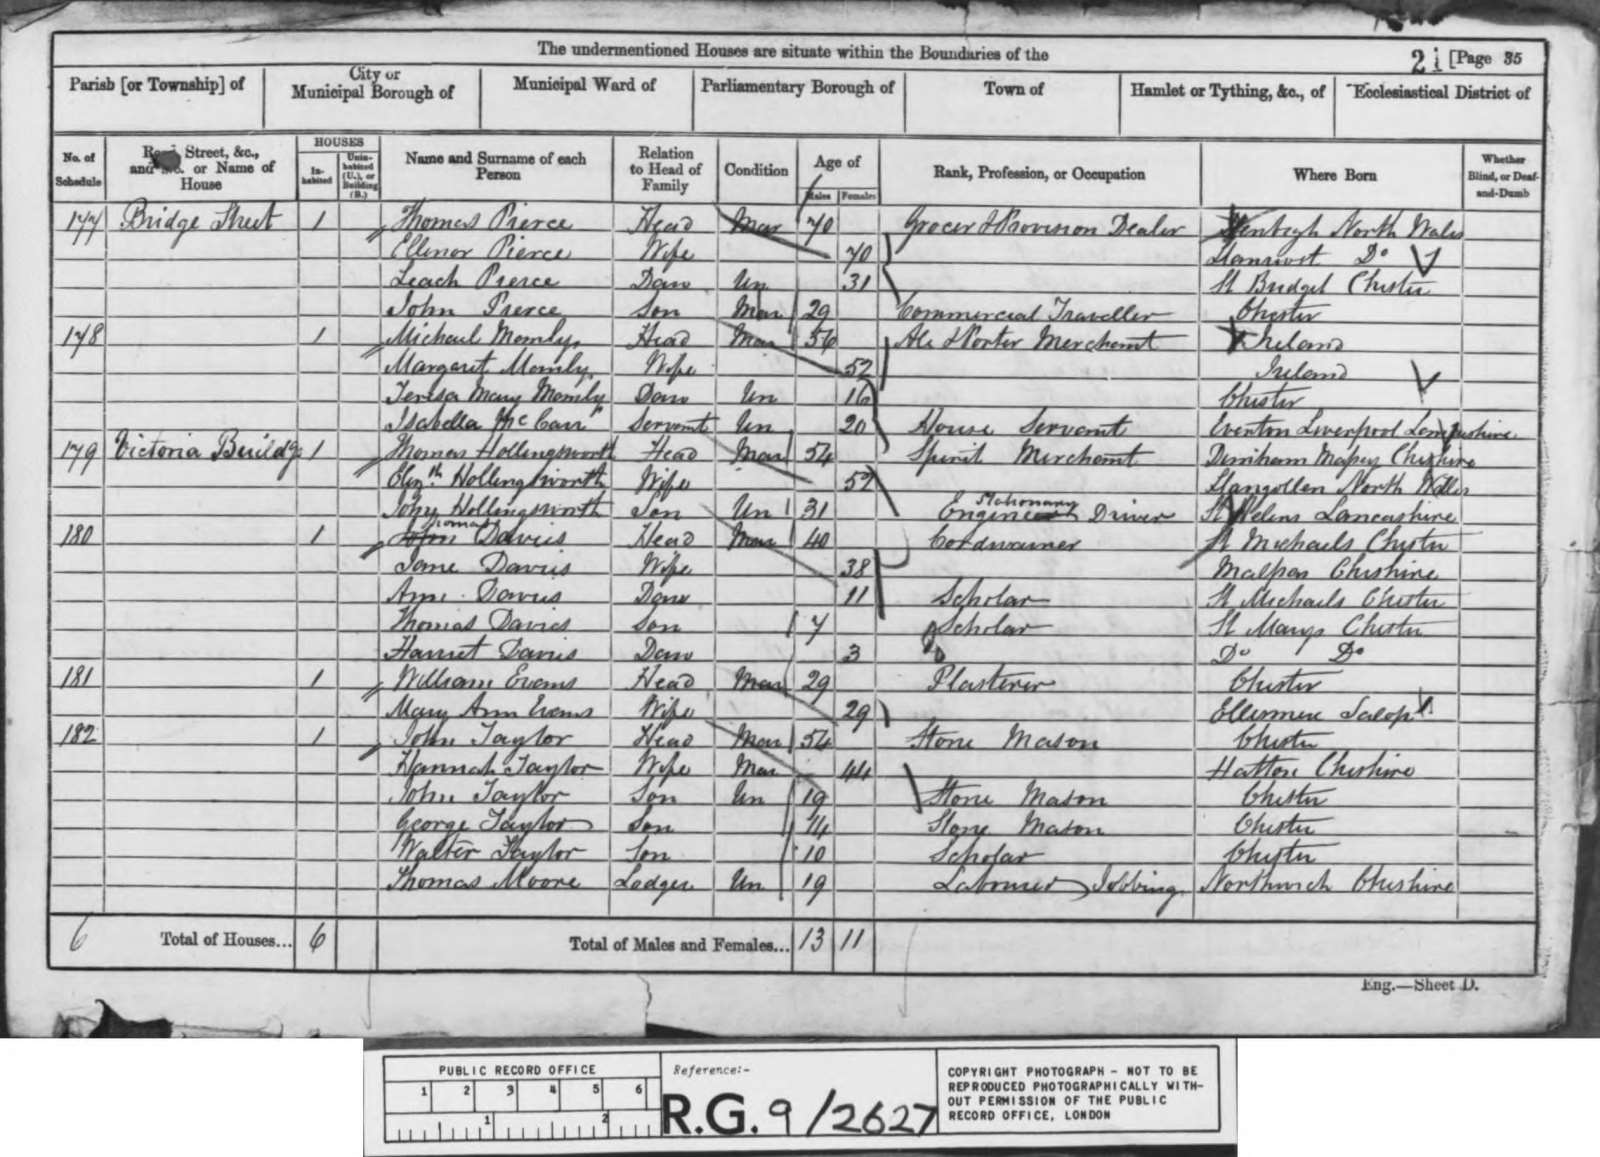 The undermentioned Houses are situate within the Boundaries of the
21 [Page 35
Parish [or Township] of
City or Municipal Borough of
Municipal Ward of
Parliamentary Borough of
Town of
Hamlet or Tything, &c., of
Ecclesiastical District of
No. of Schedule
Road, Street, &c., and No. or Name of House
HOUSES
Inhabited
Uninhabited (U.), or Building (B.)
Name and Surname of each Person
Relation to Head of Family
Condition
Age of
Males Females
Rank, Profession, or Occupation
Where Born
Whether Blind, or Deaf-and-Dumb
177 Bridge Street 1 Thomas Pierce Head Mar 70 Grocer & Provision Dealer Denbigh North Wales
Ellenor Pierce Wife 70 Llanrwst Do
Leach Pierce Daur Un 31 St Bridget Chester
John Pierce Son Mar 29 Commercial Traveller Chester
178 1 Michael Head Mar 56 Ale & Porter Merchant Ireland
Margaret Wife 52 Ireland
Teresa Mary Daur Un 16 Chester
Isabella Mc Cann Servant Un 20 House Servant Everton Liverpool Lancashire
179 Victoria Buildgs 1 Thomas Hollingsworth Head Mar 54 Spirit Merchant Cheshire
Elizth Hollingsworth Wife 52 Llangollen North Wales
John Hollingsworth Son Un 31 Stationary Engine Driver St Helens Lancashire
180 1 Thomas Davies Head Mar 40 Cordwainer St Michaels Chester
Jane Davies Wife 38 Malpas Cheshire
Ann Davies Daur 11 Scholar St Michaels Chester
Thomas Davies Son 7 Scholar St Marys Chester
Harriet Davies Daur 3 Do Do
181 1 William Evans Head Mar 29 Plasterer Chester
Mary Ann Evans Wife 29 Ellesmere Salop
182 1 John Taylor Head Mar 54 Stone Mason Chester
Hannah Taylor Wife Mar 44 Hatton Cheshire
John Taylor Son Un 19 Stone Mason Chester
George Taylor Son 14 Stone Mason Chester
Walter Taylor Son 10 Scholar Chester
Thomas Moore Lodger Un 19 Labourer Jobbing Northwich Cheshire
6 Total of Houses... 6 Total of Males and Females... 13 11
Eng.—Sheet D.
PUBLIC RECORD OFFICE
1 2 3 4 5 6
1 2
Reference:-
R.G. 9/2627
COPYRIGHT PHOTOGRAPH - NOT TO BE
REPRODUCED PHOTOGRAPHICALLY WITH-
OUT PERMISSION OF THE PUBLIC
RECORD OFFICE, LONDON